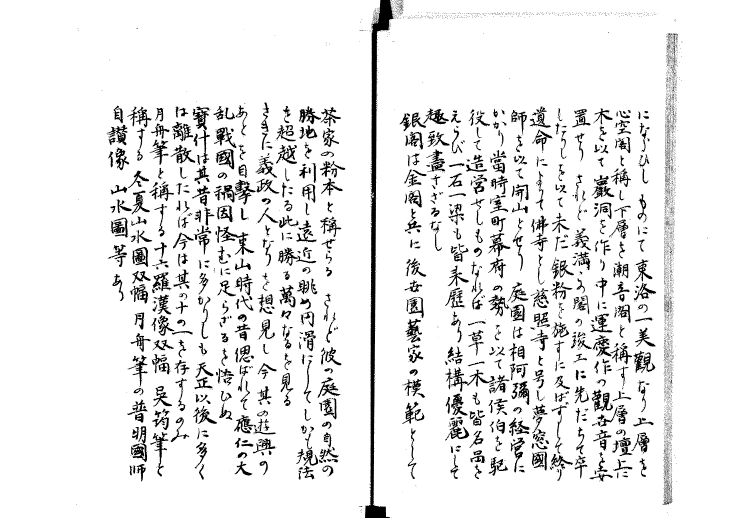 にならひし ものにて東洛の一美觀なり上層を
心空閣と稱し下層を潮音閣と稱す上層の壇上に
木を以て巖洞を作り中に運慶作の觀世音を安
置せり されど義満 閣の竣工に先だちて卒
したりしを以て未だ銀粉を施すに及ばずして終り
遺命によりて佛寺とし慈照寺と号し夢窓國
師を以て開山とせり 庭園は相阿彌の経営に
かゝり當時室町幕府の勢を以て諸侯伯を駆
役して造営せしものなれば一草一木も皆名品を
えらび一石一梁も皆来歴あり結構優麗にして
極致盡さざるなし
銀閣は金閣と共に後世園藝家の模範として
茶家の粉本と稱せらる されど彼の庭園の自然の
勝地を利用し遠近の眺め円滑にしてしかも規法
を超越したる此に勝る萬々なるを見る
きたる義政の人となりを想見し今其の遊興の
あとを目撃し東山時代の昔偲ばれて應仁の大
乱戰國の禍因怪むに足らざるを悟ひぬ
寳什は其昔非常に多かりしも天正以後に多く
は離散したれば今は其の十の一を存するのみ
月舟筆と稱する十六羅漢像双幅 呉筠筆と
稱する冬夏山水圖双幅 月舟筆の普明國師
自讃像 山水圖等あり